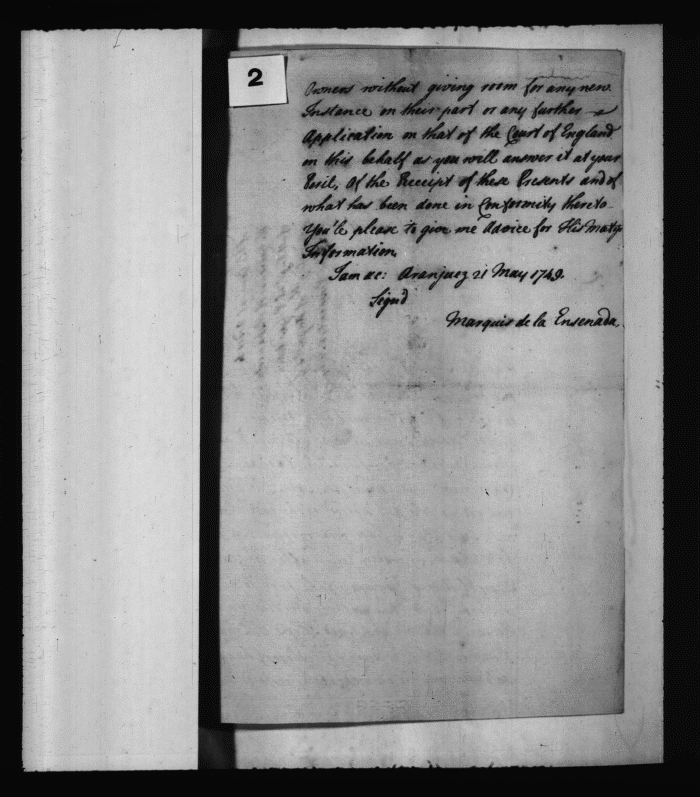 2
Owners without giving room for any new
Instance on their part or any further
Application on that of the Court of England
on this behalf as you will answer it at your
Peril, Of the Receipt of these Presents and of
what has been done in Conformity thereto
You'le please to give me Advice for His Matys
Information.
I am &c: Aranjuez 21 May 1749.
Signd
Marquis de la Ensenada.